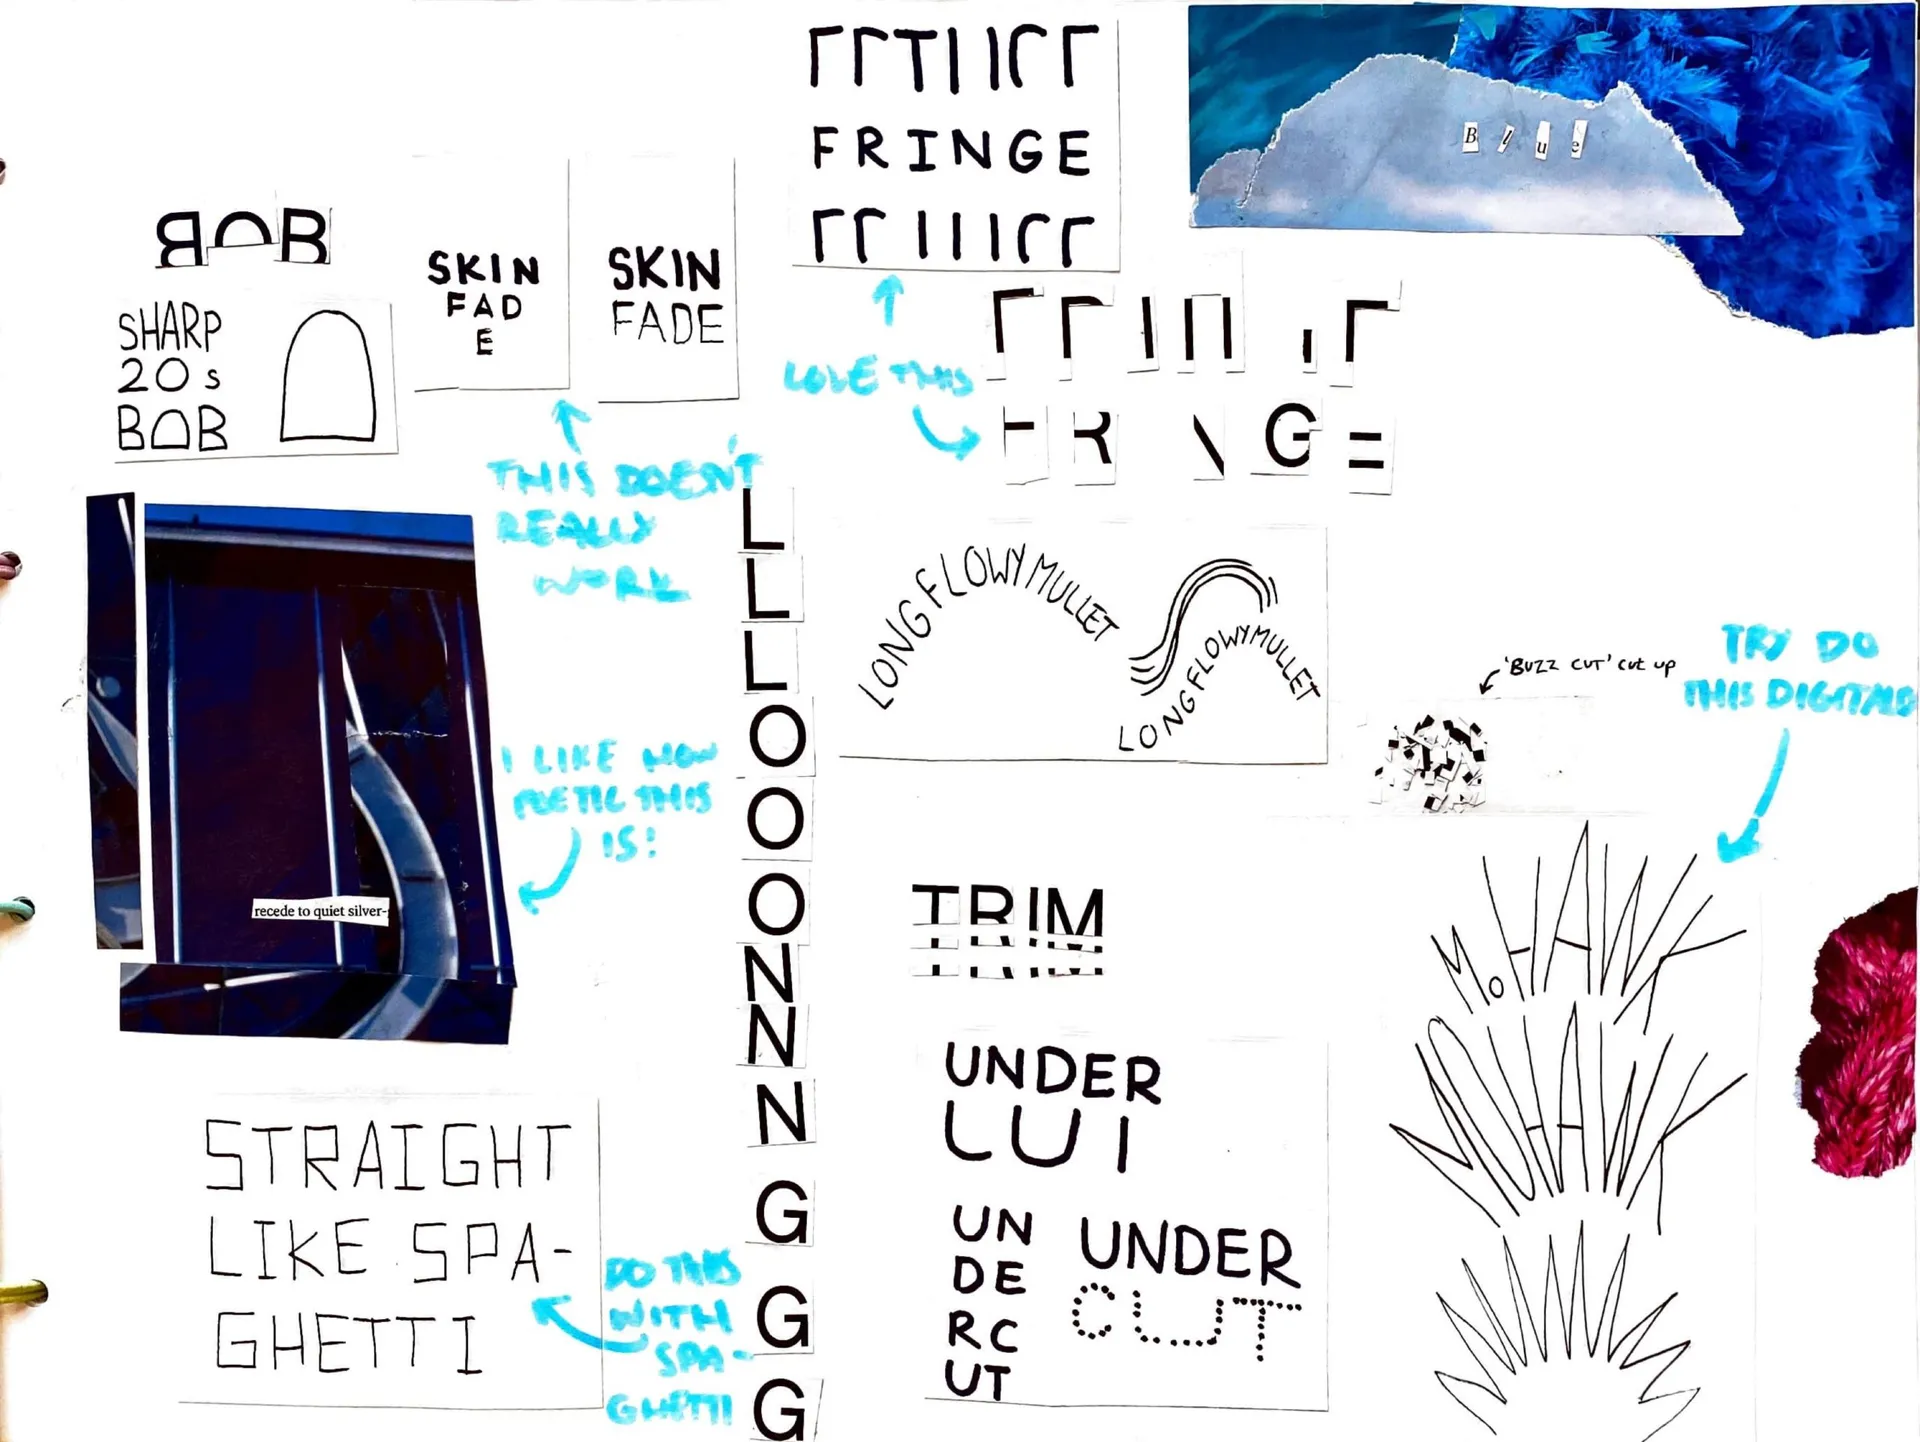 FRINGE
Blue
BOB
SKIN
FAD
E
SKIN
FADE
SHARP
20s
BOB
LOVE THIS
FRINGE
THIS DOESN'T
REALLY
WORK
LLLOOONNNGGG
LONG FLOWY MULLET
LONG FLOWY MULLET
'BUZZ CUT' CUT UP
TRY DO
THIS DIGITALLY
I LIKE HOW
POETIC THIS
IS!
recede to quiet silver-
TRIM
MOHAWK
MOHAWK
UNDER
CUT
UN
DE
RC
UT
UNDER
CUT
STRAIGHT
LIKE SPA-
GHETTI
DO THIS
WITH
SPA-
GHETTI